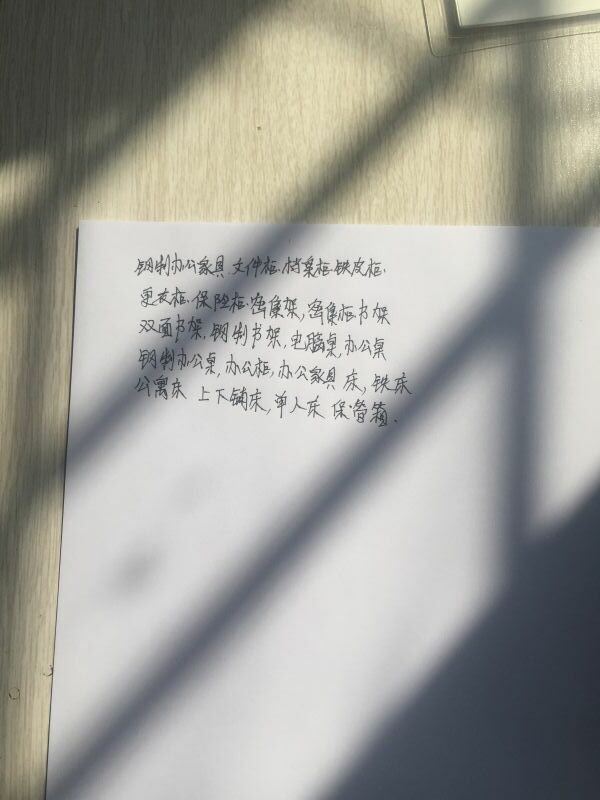 钢制办公家具 文件柜.档案柜.铁皮柜.
更衣柜.保险柜.密集架,密集柜.书架
双面书架,钢制书架,电脑桌,办公桌
钢制办公桌,办公柜,办公家具 床,铁床
公寓床 上下铺床,单人床 保管箱.